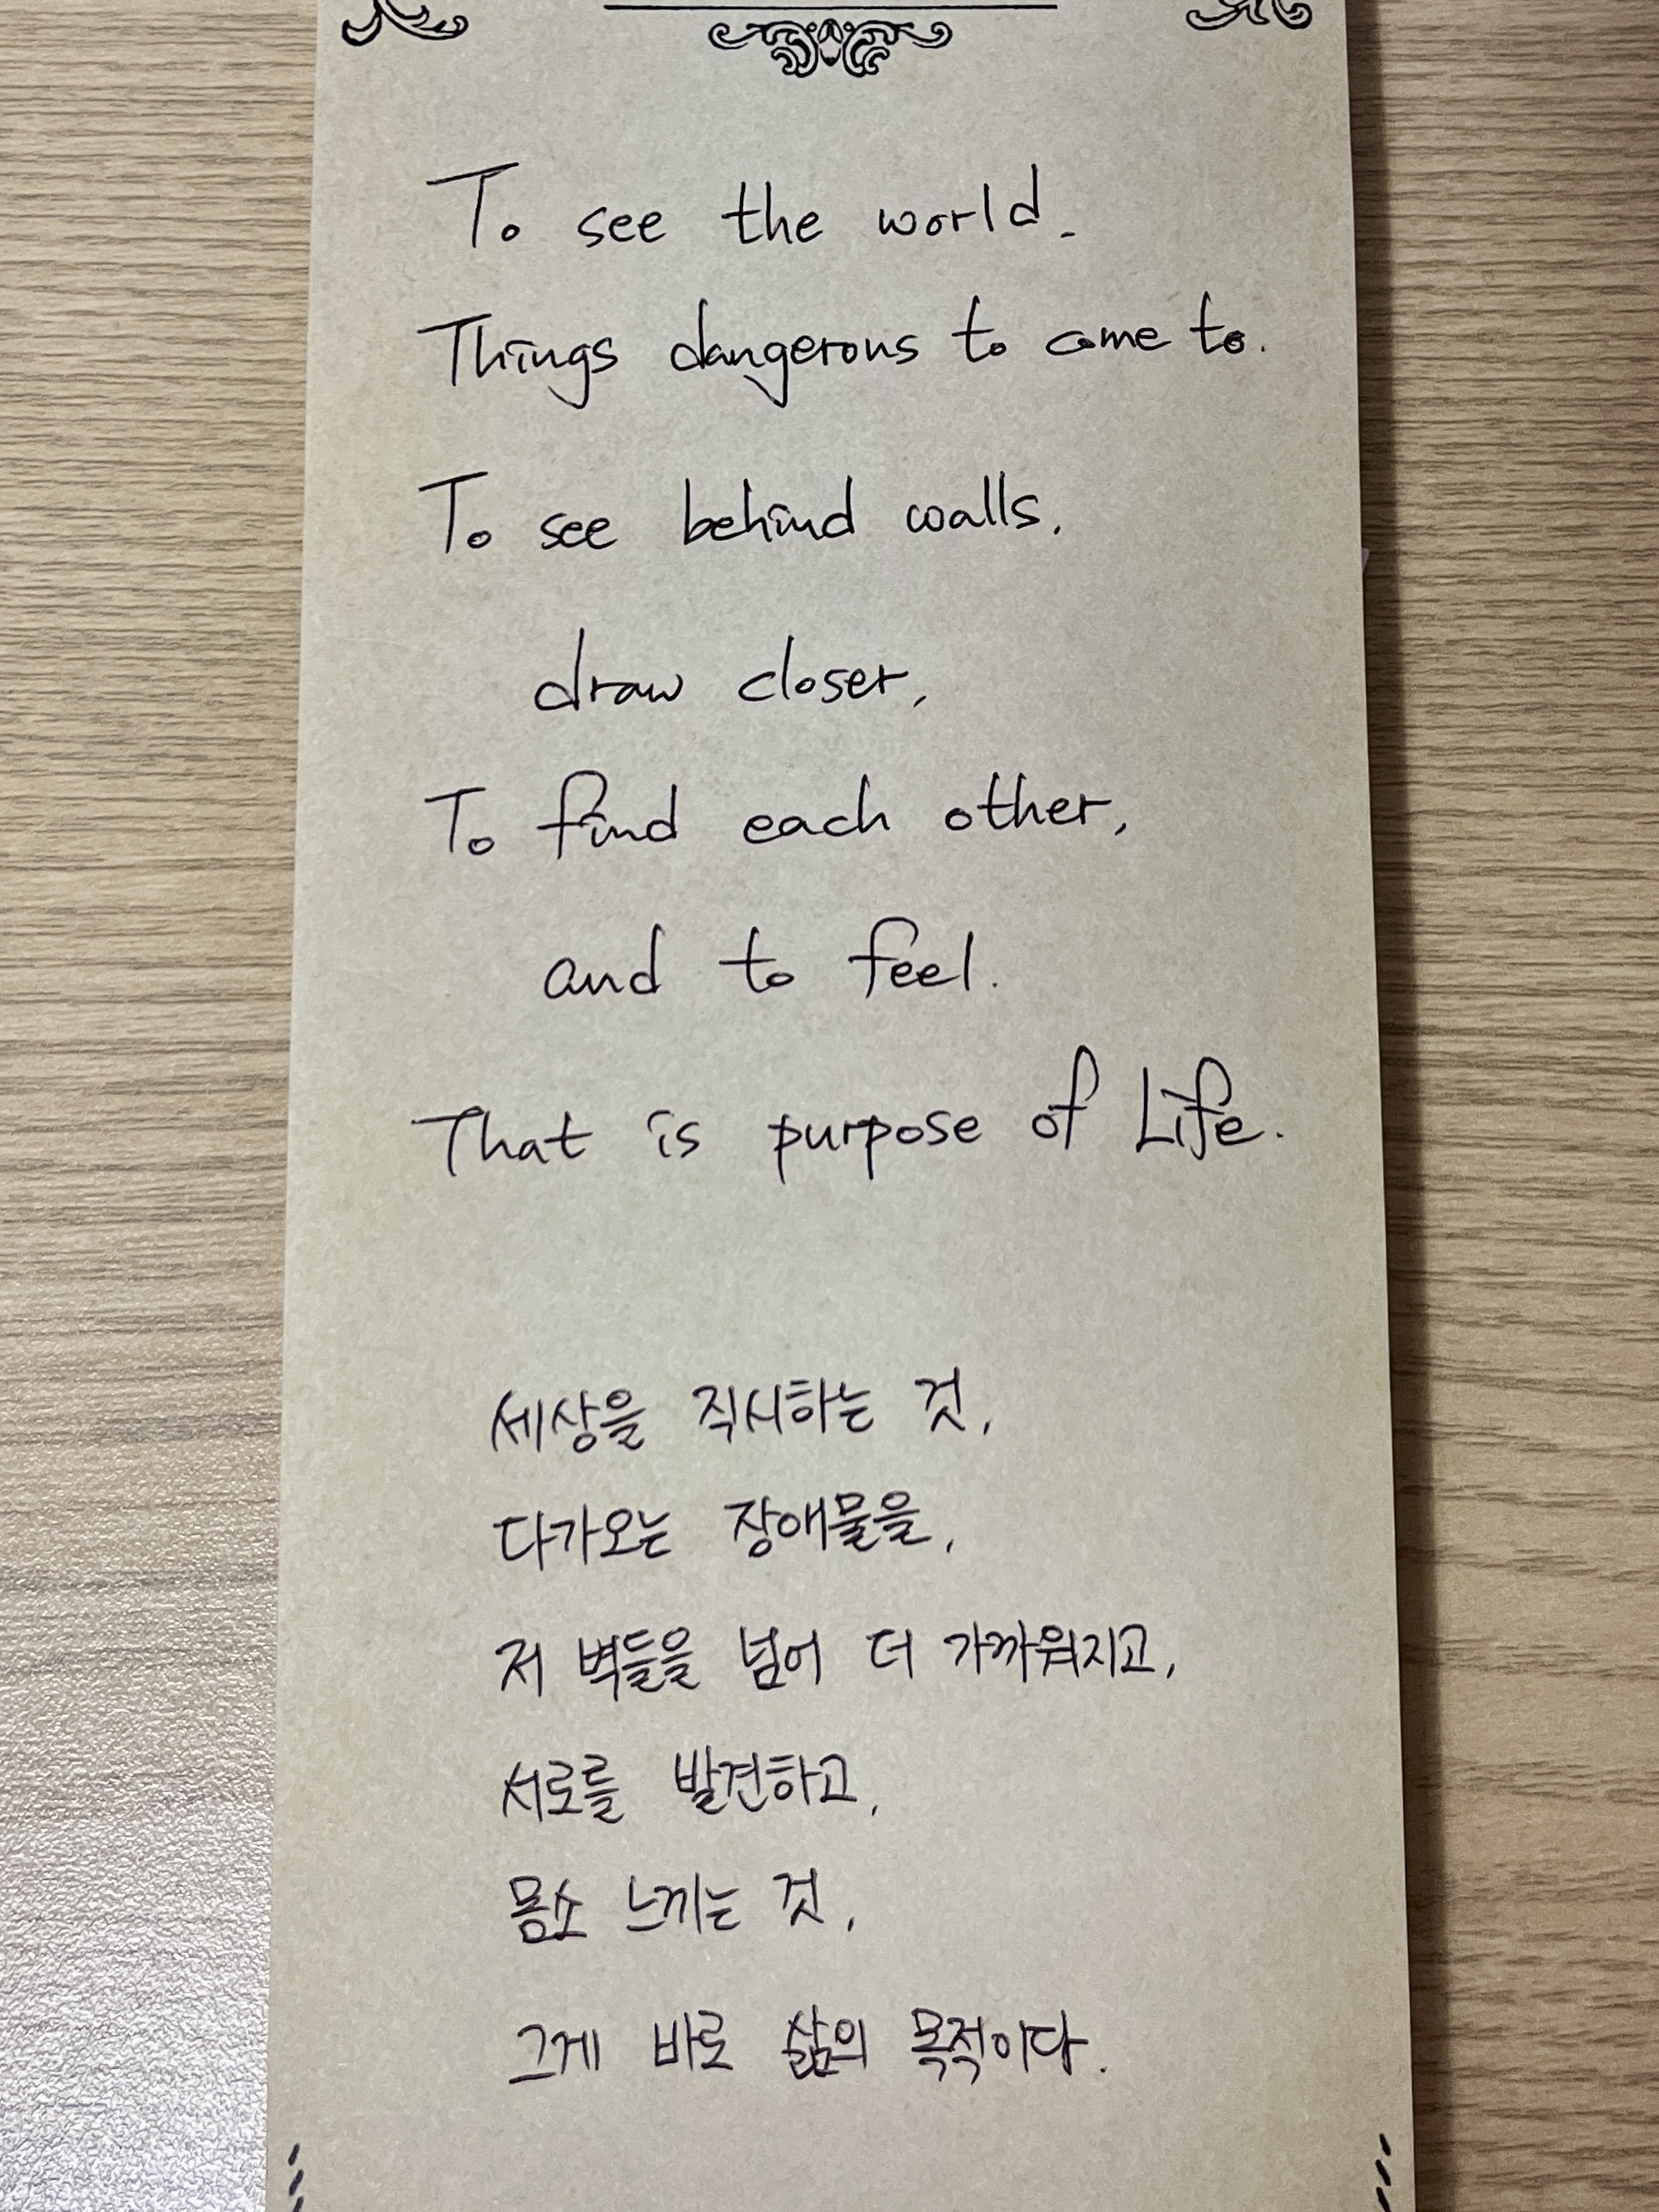 To see the world.
Things dangerous to come to.
To see behind walls,
draw closer,
To find each other,
and to feel.
That is purpose of Life.
세상을 직시하는 것,
다가오는 장애물을,
저 벽들을 넘어 더 가까워지고,
서로를 발견하고,
몸소 느끼는 것,
그게 바로 삶의 목적이다.